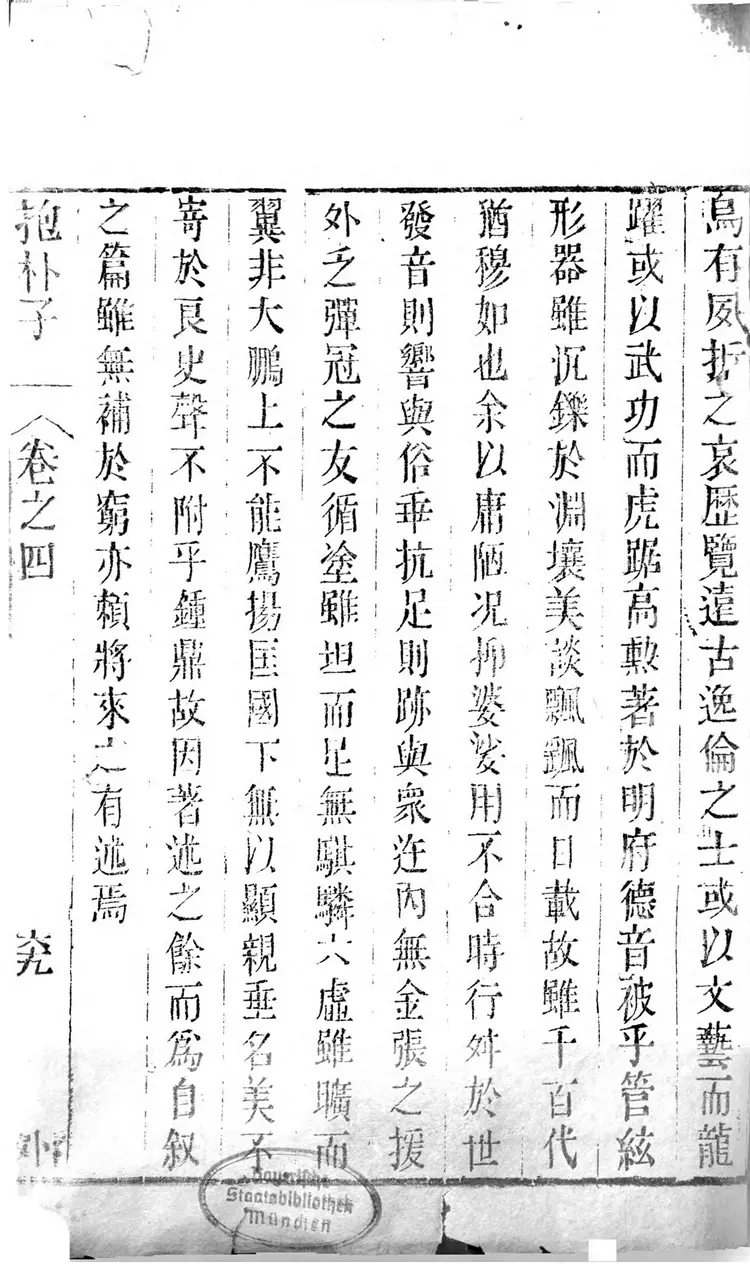 烏有夙折之哀歷覽遠古逸倫之士或以文藝而龍
躍或以武功而虎踞高勲著於明府德音被乎管絃
形器雖沉鑠於淵壤美談飄飄而日載故雖千百代
猶穆如也余以庸陋况抑婆娑用不合時行舛於世
發音則響與俗乖抗足則跡與衆迕內無金張之援
外乏彈冠之友循塗雖坦而足無騏驎六虛雖曠而
翼非大鵬上不能鷹揚匡國下無以顯親垂名美不
寄於良史聲不附乎鍾鼎故因著述之餘而爲自叙
之篇雖無補於窮亦賴將來之有述焉
抱朴子 卷之四 六九
Bayerische
Staatsbibliothek
München